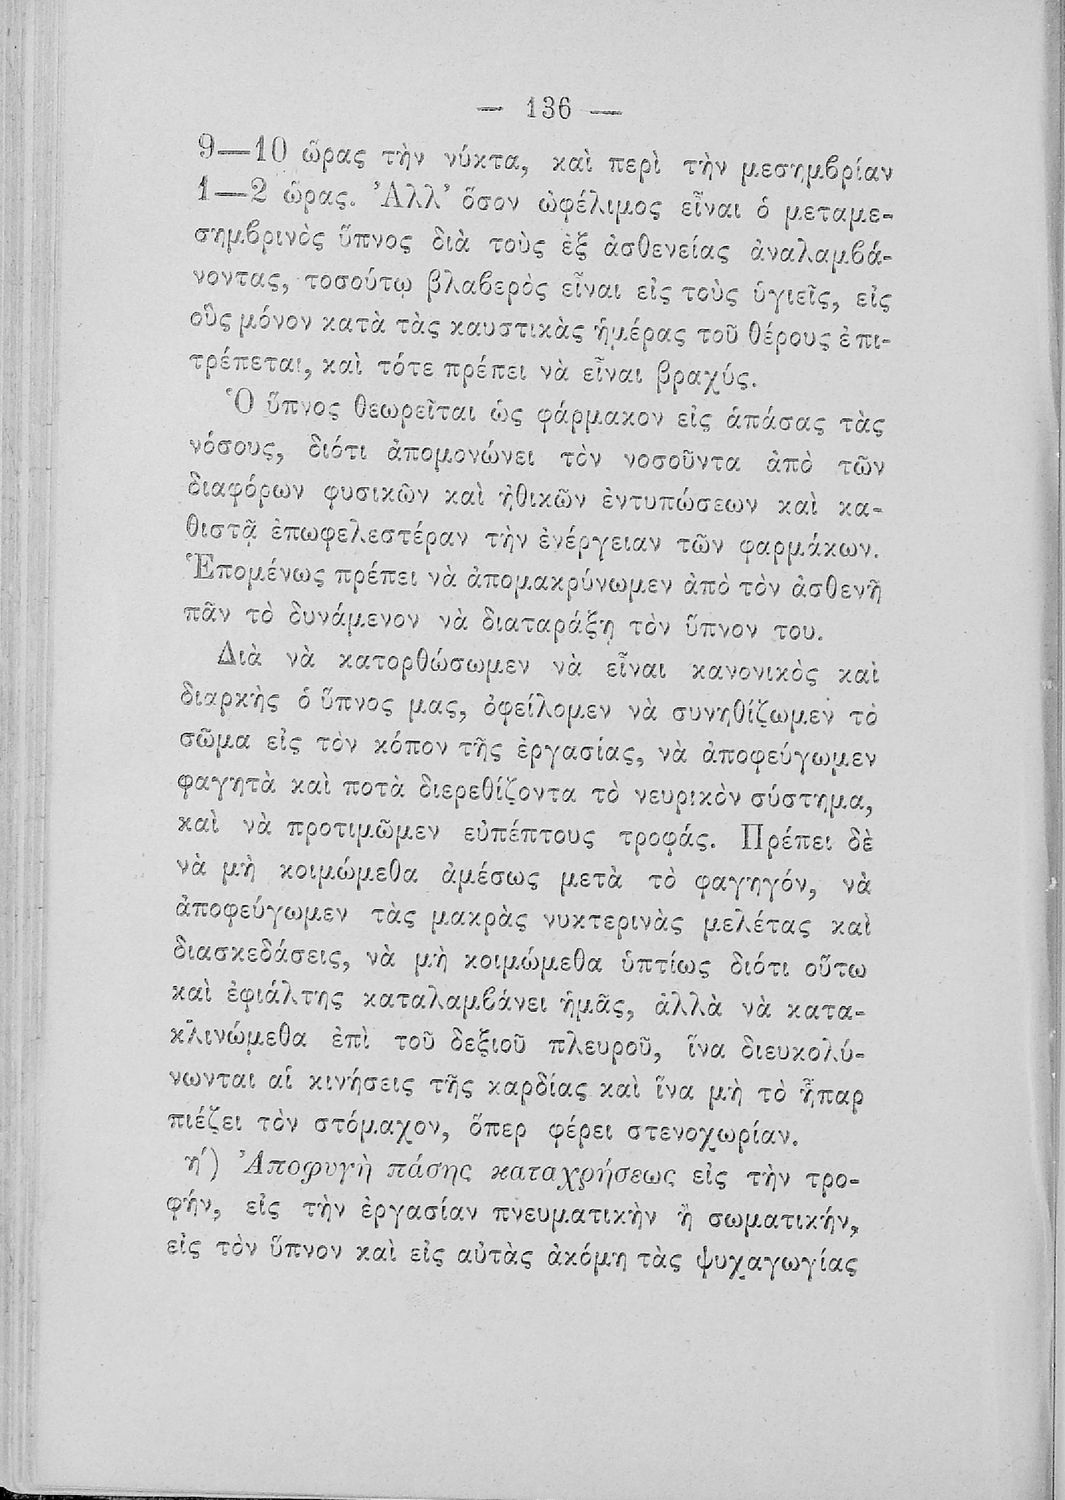 — 136 —
9—10 ὥρας τὴν νύκτα, καὶ περὶ τὴν μεσημβρίαν
1—2 ὥρας. Ἀλλ’ ὅσον ὠφέλιμος εἶναι ὁ μεταμε-
σημβρινὸς ὕπνος διὰ τοὺς ἐξ ἀσθενείας ἀναλαμβά-
νοντας, τοσούτῳ βλαβερὸς εἶναι εἰς τοὺς ὑγιεῖς, εἰς
οὓς μόνον κατὰ τὰς καυστικὰς ἡμέρας τοῦ θέρους ἐπι-
τρέπεται, καὶ τότε πρέπει νὰ εἶναι βραχύς.
Ὁ ὕπνος θεωρεῖται ὡς φάρμακον εἰς ἁπάσας τὰς
νόσους, διότι ἀπομονώνει τὸν νοσοῦντα ἀπὸ τῶν
διαφόρων φυσικῶν καὶ ἠθικῶν ἐντυπώσεων καὶ κα-
θιστᾷ ἐπωφελεστέραν τὴν ἐνέργειαν τῶν φαρμάκων.
Ἑπομένως πρέπει νὰ ἀπομακρύνωμεν ἀπὸ τὸν ἀσθενῆ
πᾶν τὸ δυνάμενον νὰ διαταράξῃ τὸν ὕπνον του.
Διὰ νὰ κατορθώσωμεν νὰ εἶναι κανονικὸς καὶ
διαρκὴς ὁ ὕπνος μας, ὀφείλομεν νὰ συνηθίζωμεν τὸ
σῶμα εἰς τὸν κόπον τῆς ἐργασίας, νὰ ἀποφεύγωμεν
φαγητὰ καὶ ποτὰ διερεθίζοντα τὸ νευρικὸν σύστημα,
καὶ νὰ προτιμῶμεν εὐπέπτους τροφάς. Πρέπει δὲ
νὰ μὴ κοιμώμεθα ἀμέσως μετὰ τὸ φαγηγόν, νὰ
ἀποφεύγωμεν τὰς μακρὰς νυκτερινὰς μελέτας καὶ
διασκεδάσεις, νὰ μὴ κοιμώμεθα ὑπτίως διότι οὕτω
καὶ ἐφιάλτης καταλαμβάνει ἡμᾶς, ἀλλὰ νὰ κατα-
κλινώμεθα ἐπὶ τοῦ δεξιοῦ πλευροῦ, ἵνα διευκολύ-
νωνται αἱ κινήσεις τῆς καρδίας καὶ ἵνα μὴ τὸ ἧπαρ
πιέζει τὸν στόμαχον, ὅπερ φέρει στενοχωρίαν.
η´) Ἀποφυγὴ πάσης καταχρήσεως εἰς τὴν τρο-
φήν, εἰς τὴν ἐργασίαν πνευματικὴν ἢ σωματικήν,
εἰς τὸν ὕπνον καὶ εἰς αὐτὰς ἀκόμη τὰς ψυχαγωγίας